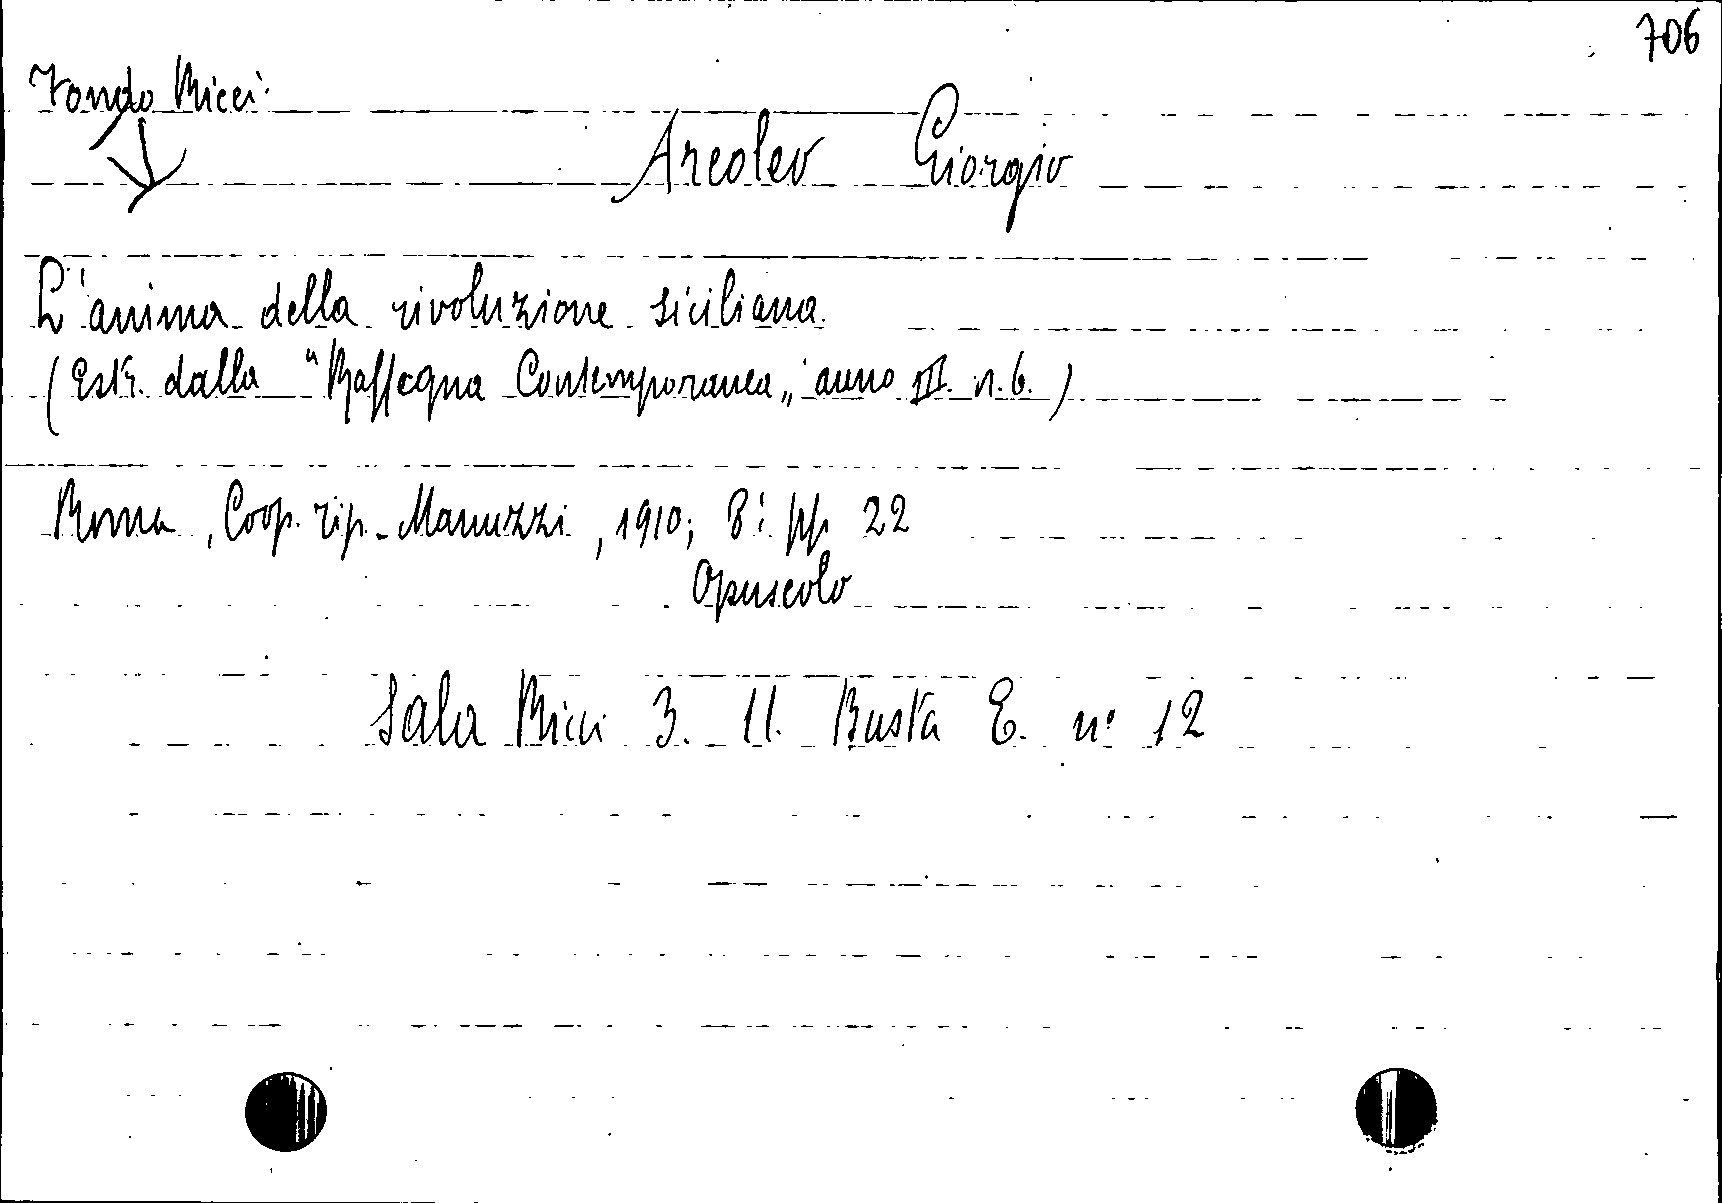 706
Fondo Ricci
Arcoleo Giorgio
L'anima della rivoluzione siciliana
(Estr. dalla "Rassegna Contemporanea„ anno III. n. 6.)
Roma, Coop. Tip. Manuzzi, 1910; 8: pp 22
Opuscolo
Sala Ricci 3. 11. Busta E. n° 12